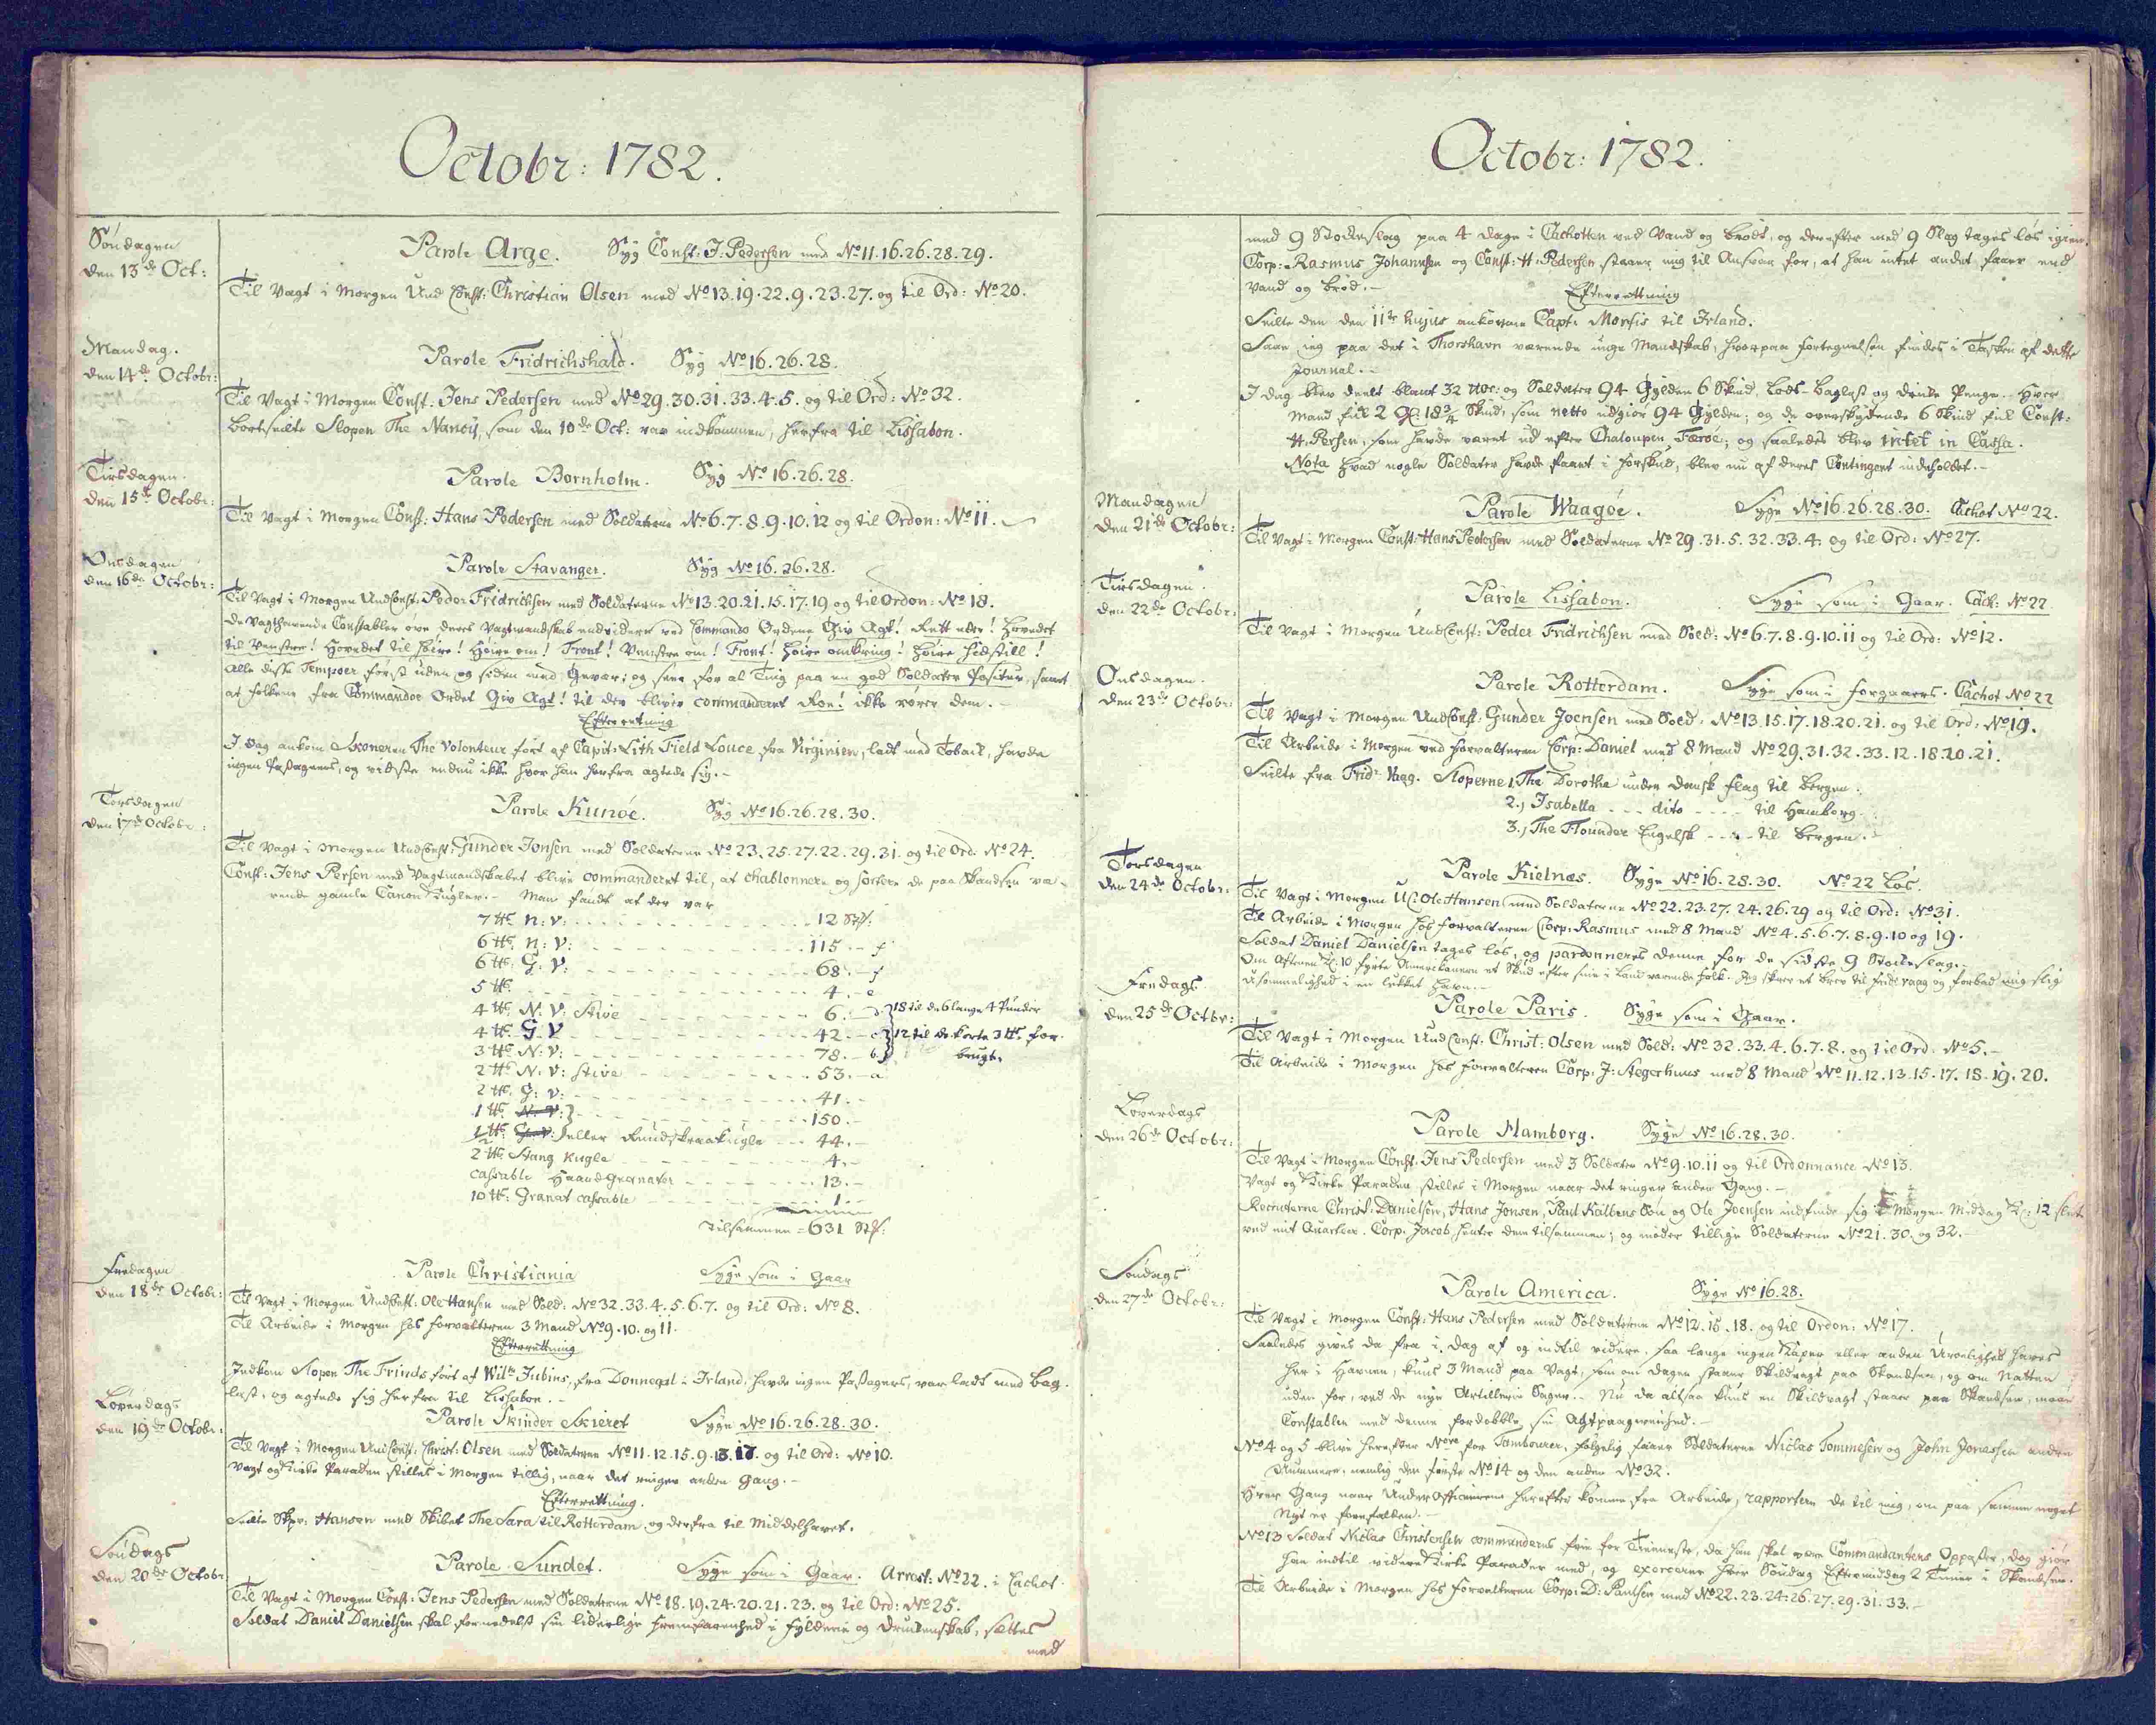 Octobr: 1782.
Søndagen
den 13de Oct:
Parole Arge. Syg Const: J: Pedersen med No 11. 16. 26. 28. 29.
Til Vagt i Morgen Und Const: Christian Olsen med No 13. 19. 22. 9. 23. 27. og til Ord: No 20.
Mandag.
den 14de Octobr:
Parole Fridrichshald. Syg No 16. 26. 28.
Til Vagt i Morgen Const: Jens Pedersen med No 29. 30. 31. 33. 4. 5. og til Ord: No 32.
Bortseilte Slopen The Nancy, som den 10de Oct: var indkommen, herfra til Lissabon.
Tirsdagen.
den 15de Octobr:
Parole Bornholm. Syg No 16. 26. 28.
Til Vagt i Morgen Const: Hans Pedersen med Soldaterne No 6. 7. 8. 9. 10. 12 og til Ordon: No 11.
Onsdagen
den 16de Octobr:
Parole Stavanger. Syg No 16. 26. 28.
Til Vagt i Morgen Und Const: Peder Fridrichsen med Soldaterne No 13. 20. 21. 15. 17. 19 og til Ordon: No 18.
De Vagthavende Constabler øve deres Vagtmandskab endvidere ved Commando Ordene Giv Agt! Rett eder! Hovedet
til Venstre! Hovedet til Høire! Høire om! Front! Venstre om! Front! Høire omkring! Høire Hidstill!
Alle disse Tempoer først uden og siden med Gevær; og seer for al Ting paa en god Soldater Positur, samt
at folkene fra Commandoe Ordet Giv Agt! til der bliver commanderet Roe! ikke rører dem.-
Efterretning
I Dag ankom Skoneren The Volonteur ført af Capit: Lith Field Louce, fra Virginien, ladt med Toback, havde
ingen Passagerer, og vidste endnu ikke hvor han herfra agtede sig.-
Torsdagen
den 17de Octobr:
Parole Kunöe. Syg No 16. 26. 28. 30.
Til Vagt i Morgen Und Const: Gunder Jonsen med Soldaterne No 23. 25. 27. 22. 29. 31. og til Ord: No 24.
Const: Jens Persen med Vagtmandskabet blive commanderet til, at chablonnere og sortere de paa Skandsen væ-
rende gamle Canon Kugler.- Man fandt at der var
7 ℔ N: V: 12 Stk:
6 ℔ N: V: 115.- f
6 ℔ G: V: 68.- f
5 ℔ 4.- e
4 ℔ N: V: Stive 6.- d 18 til de 6 lange 4 Punder
4 ℔ G V 42.- c 12 til de korte 3 ℔ for-
3 ℔ N: V: 78.- b brugt.
2 ℔ N: V: stive 53.- a
2 ℔ G: V: 41.-
1 ℔ N: V: 150.-
1/2 ℔ G: V: eller Rundskraakugle 44.-
2 ℔ Stang Kugle 4.-
cassable Haand Granater 13.-
10 ℔: Granat cassable 1.-
Tilsammen = 631 Stk:
Fredagen
den 18de Octobr:
Parole Christiania Syge som i Gaar
Til Vagt i Morgen Und Const: Ole Hansen med Sold: No 32. 33. 4. 5. 6. 7. og til Ord: No 8.
Til Arbeide i Morgen hos Forvalteren 3 Mand No 9. 10. og 11.
Efterretning
Indkom Slopen The Frinds ført af Wilm Jubins, fra Donnegal i Irland, havde ingen Passagers, var ladt med Bag-
last, og agtede sig herfra til Lissabon.-
Løverdags
den 19de Octobr:
Parole Skinder Skieret Syge No 16. 26. 28. 30.
Til Vagt i Morgen Und Const: Christ: Olsen med Soldaterne No 11. 12. 15. 9. 13. 17. og til Ord: No 10.
Vagt og Kirke Paraden stilles i Morgen tillig, naar det ringer anden Gang.-
Efterretning.
Seilte Skpr: Hansen med Skibet The Sara til Rotterdam og derfra til Middelhavet.
Søndags
den 20de Octobr
Parole Sundet. Syge som i Gaar. Arrest: No 22. i Cachot.
Til Vagt i Morgen Const: Jens Pedersen med Soldaterne No 18. 19. 24. 20. 21. 23. og til Ord: No 25.
Soldat Daniel Danielsen skal formedelst sin liderlige Fremfarenhed i Fylderie og Drukkenskab, sættes
med
Octobr: 1782.
med 9 Stokkeslag paa 4 Dage i Cachotten ved Vand og Brød, og derefter med 9 Slag tages løs igien.
Corp: Rasmus Johannsen og Const: H: Pedersen staaer mig til Ansvar for, at han intet andet faaer end
Vand og Brød.-
Efterretning
Seilte den den 11te hujus ankomne Capt: Morsis til Irland.
Saae jeg paa det i Thorshavn værende unge Mandskab, hvorpaa fortegnelsen findes i Tasken af dette
Journal.-
I Dag blev deelt blant 32 Uoc: og Soldater 94 Gylden 6 Skind Lods-Baglast og Drikke Penge. Hver
Mand fik 2 Gl: 18 3/4 Skind, som netto udgiør 94 Gylden; og de overskydende 6 Skind fik Const:
H. Persen, som havde været ud efter Chaloupen Færøe; og saaledes blev intet in Cassa.
Nota Hvad nogle Soldater havde faaet i Forskud, blev nu af deres Contingent indeholdet.-
Mandagen
den 21de Octobr:
Parole Waagøe. Syge No 16. 26. 28. 30. Cachot No 22.
Til Vagt i Morgen Const: Hans Pedersen med Soldaterne No 29. 31. 5. 32. 33. 4. og til Ord: No 27.
Tirsdagen.
den 22de Octobr:
Parole Lissabon. Syge som i Gaar. Cach: No 22
Til Vagt i Morgen Und Const: Peder Fridrichsen med Sold: No 6. 7. 8. 9. 10. 11 og til Ord: No 12.
Onsdagen.
den 23de Octobr:
Parole Rotterdam. Syge som i Forgaars. Cachot No 22
Til Vagt i Morgen Und Const: Gunder Joensen med Sold: No 13. 15. 17. 18. 20. 21. og til Ord: No 19.
Til Arbeide i Morgen ved Forvalteren Corp: Daniel med 8 Mand No 29. 31. 32. 33. 12. 18. 20. 21.
Seilte fra Frid: Vaag. Sloperne 1, The Dorothe under Dansk Flag til Bergen.
2., Isabella - - dito - - - til Hamborg.
3., The Flounder Engelsk - - - til Bergen.
Torsdagen
den 24de Octobr:
Parole Kielnæs. Syge No 16. 28. 30. No 22 Løs.
Til Vagt i Morgen UC: Ole Hansen med Soldaterne No 22. 23. 27. 24. 26. 29 og til Ord: No 31.
Til Arbeide i Morgen hos Forvalteren Corp: Rasmus med 8 Mand No 4. 5. 6. 7. 8. 9. 10 og 19.
Soldat Daniel Danielsen tages løs, og pardonneres denne for de sidste 9 Stokkeslag.-
Om Aftenen Kl: 10 fyrte Amerikaneren et Skud efter sine i Land værende Folk. Jeg skrev et Brev til Frid: vaag og forbød mig slig
Usommelighed i en lukket Havn.-
Fredags
den 25de Octbr:
Parole Paris. Syge som i Gaar.
Til Vagt i Morgen Und Const: Christ: Olsen med Sold: No 32. 33. 4. 6. 7. 8. og til Ord: No 5.-
Til Arbeide i Morgen hos Forvalteren Corp: J: Stegerhuus med 8 Mand No 11. 12. 13. 15. 17. 18. 19. 20.
Løverdags
den 26de Octobr:
Parole Hamborg. Syge No 16. 28. 30.
Til Vagt i Morgen Const: Jens Pedersen med 3 Soldater No 9. 10. 11 og til Ordonnance No 13.
Vagt og Kirke Paraden stilles i Morgen naar det ringer anden Gang.-
Recruterne Christ: Danielsen, Hans Jonsen, Poul Kalbens Søn og Ole Joensen indfinde sig i Morgen Middag Kl: 12 slet
ved mit Quarteer. Corp: Jacob henter dem tilsammen; og møder tillige Soldaterne No 21. 30. og 32.
Søndags
den 27de Octobr:
Parole America. Syge No 16. 28.
Til Vagt i Morgen Const: Hans Pedersen med Soldaterne No 12. 15. 18. og til Ordon: No 17.
Saaledes gives da fra i Dag af og indtil videre, saa længe ingen Kaper eller anden Uroelighed haves
her i Havnen, kuns 3 Mand paa Vagt, som om Dagen staaer Skildvagt paa Skandsen, og om Natten
uden for, ved de nye Artillerie Sager.- Nu da altsaa kuns en Skildvagt staaer paa Skandsen, maae
Constablen med denne fordobble sin Agtpaagivenhed.-
No 4 og 5 blive herefter Nore for Tambourer, følgelig faaer Soldaterne Niclas Tommesen og John Jonassen andre
Nummere, nemlig den første No 14 og den anden No 32.
Hver Gang naar Under Officererne herefter komme fra Arbeide, rapportere de til mig, om paa samme noget
Nyt er forefalden.-
No 13 Soldat Niclas Christensen commanderes frie for Tieneste, da han skal være Commandantens Oppasser, dog giør
han indtil videre Kirke Parader med, og exercerer hver Søndag Eftermiddag 2 Timer i Skandsen.
Til Arbeide i Morgen hos Forvalteren Corp: D: Poulsen med No 22. 23. 24. 26. 27. 29. 31. 33.-